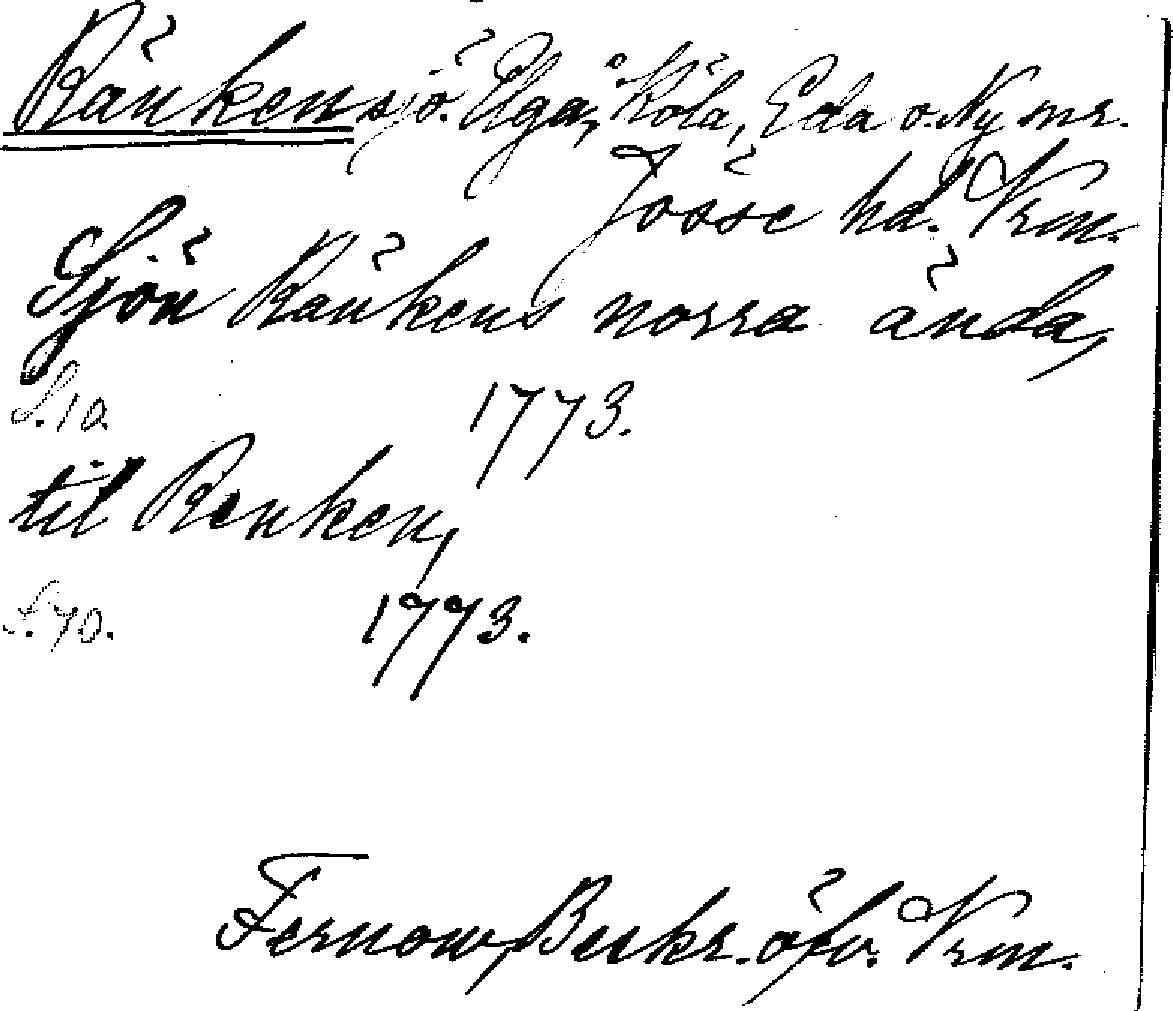 Ränken sjö. Elgå, Köla, Eda o. Ny snr.
Jösse hd. Vrm.
Sjön Ränkens norra ända,
S. 10. 1773.
til Renken,
S. 70. 1773.
Fernow, Beskr. öfv. Vrm.